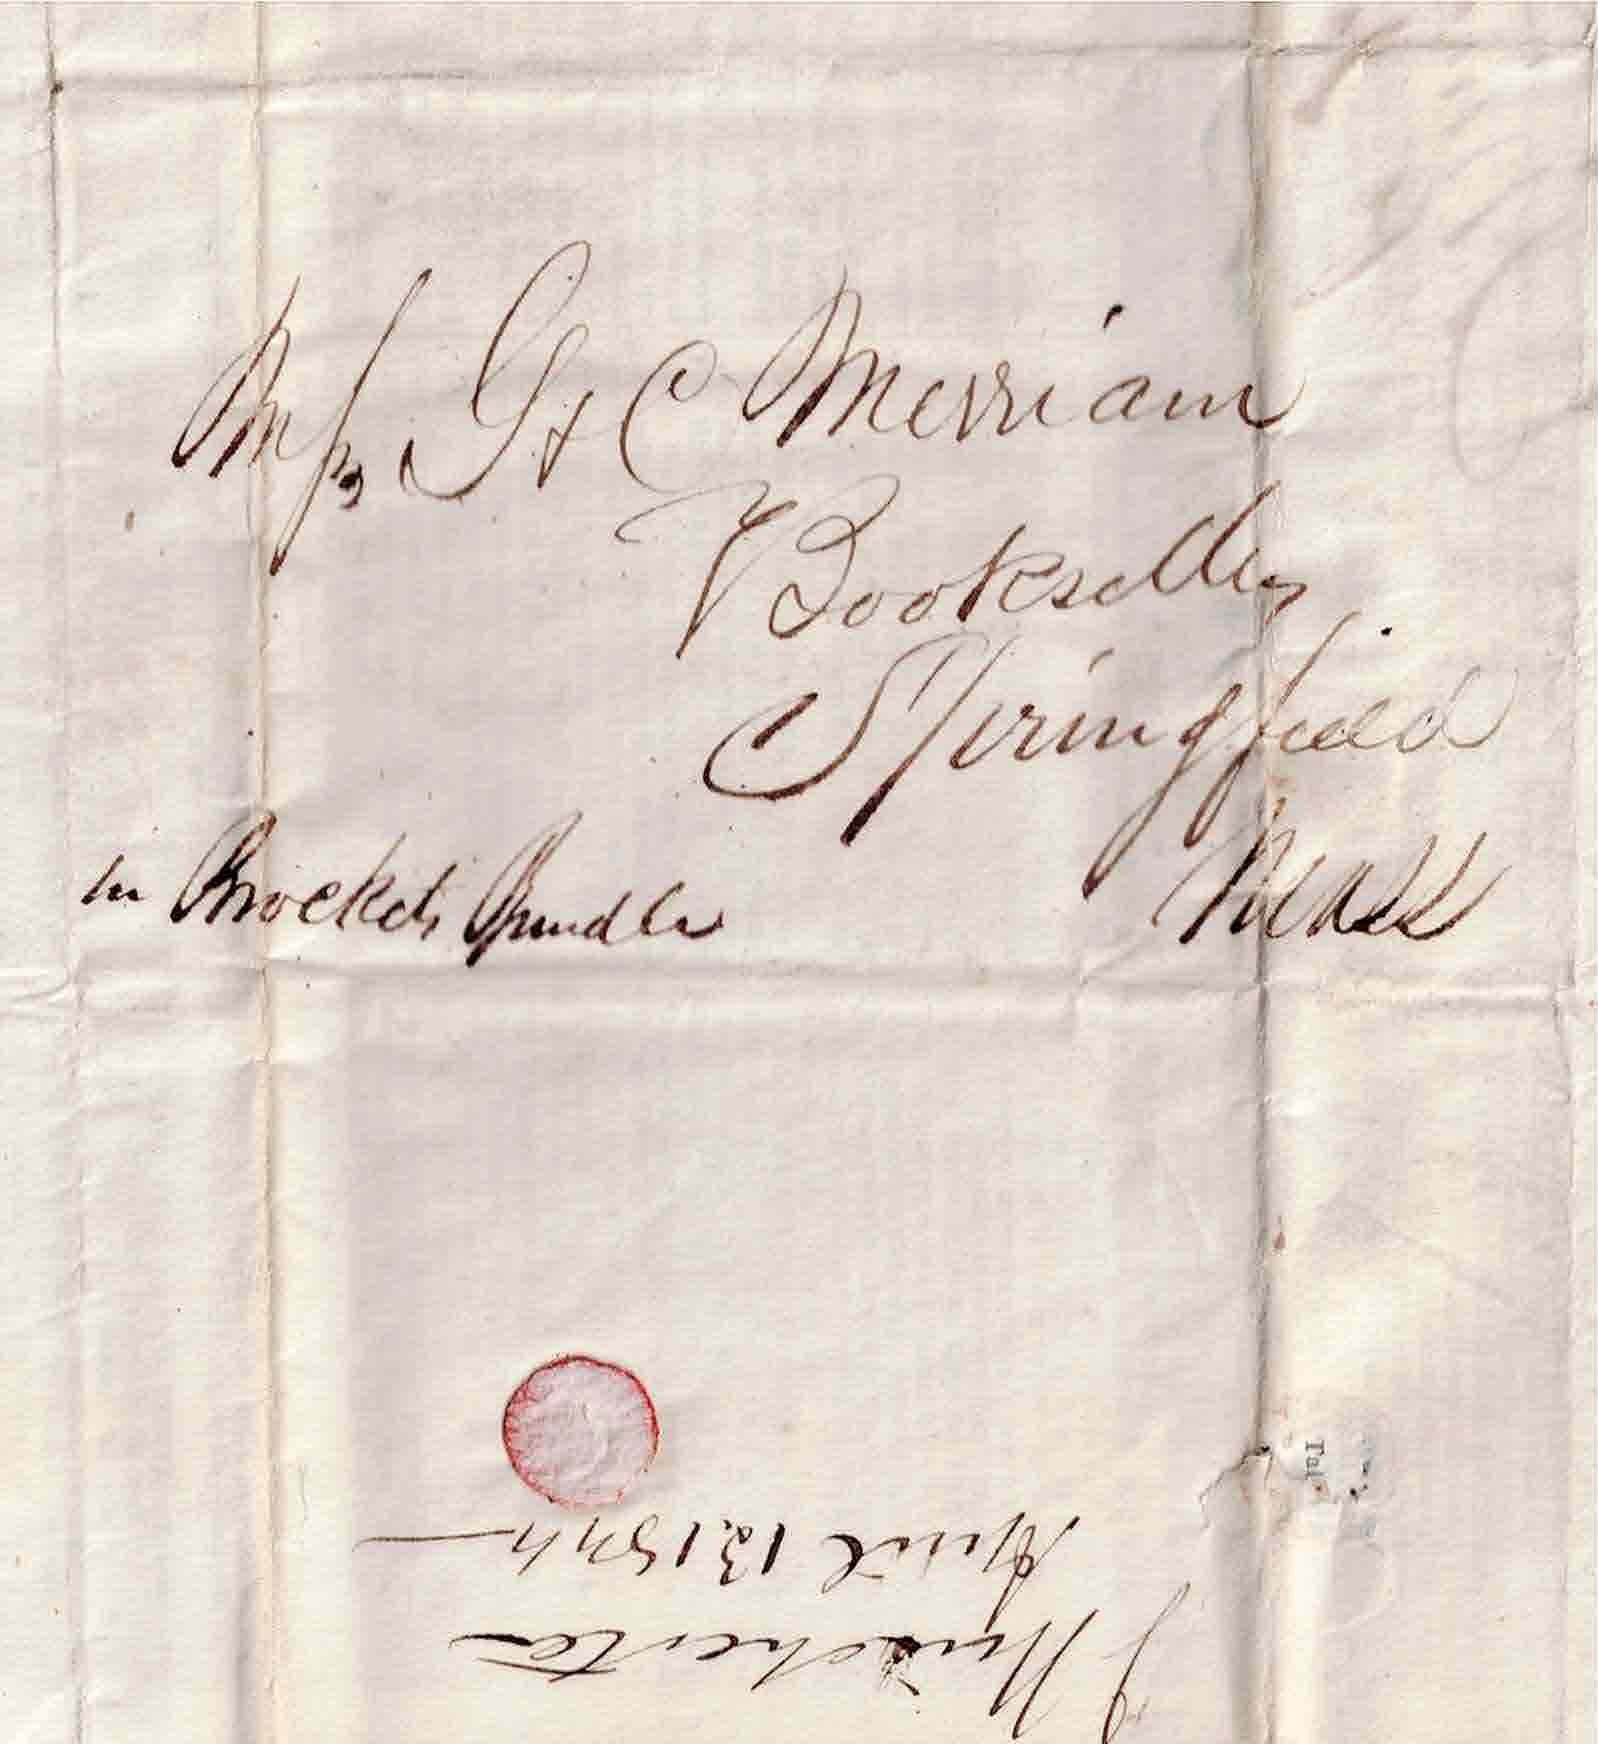 Mess, G & C Merriam
Booksellers
Springfield
Mass
In Brockets Bundle
J Winchester
April 13. 1844